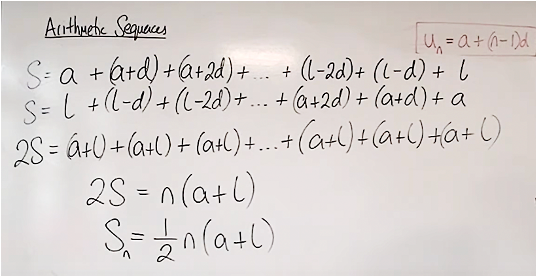 Arithmetic Sequences
Uₙ = a + (n-1)d
S = a + (a+d) + (a+2d) + ... + (l-2d) + (l-d) + l
S = l + (l-d) + (l-2d) + ... + (a+2d) + (a+d) + a
2S = (a+l) + (a+l) + (a+l) + ... + (a+l) + (a+l) + (a+l)
2S = n(a+l)
Sₙ = 1/2 n(a+l)